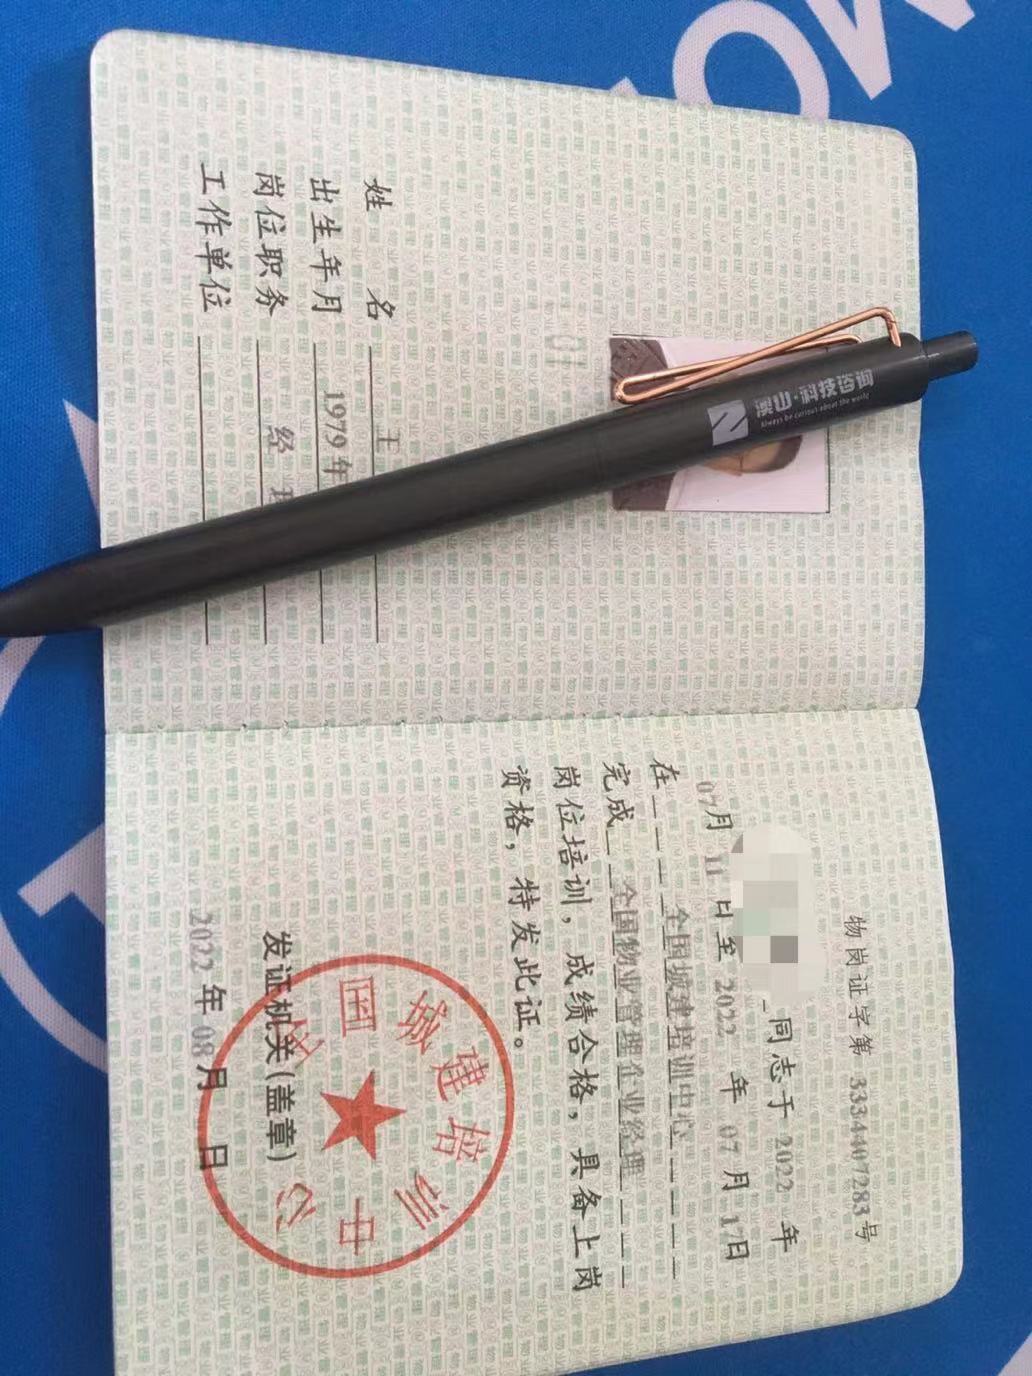 姓 名 王
出生年月 1979年
岗位职务 经
工作单位
01
溪山·科技咨询
Always be curious about the world
物岗证字第 3334407283号
同志于 2022 年
07月 11 日至 2022 年 07 月 17日
在 全国城建培训中心
完成 全国物业管理企业经理
岗位培训，成绩合格，具备上岗
资格，特发此证。
发证机关(盖章)
2022 年 08月 日
全国城建培训中心